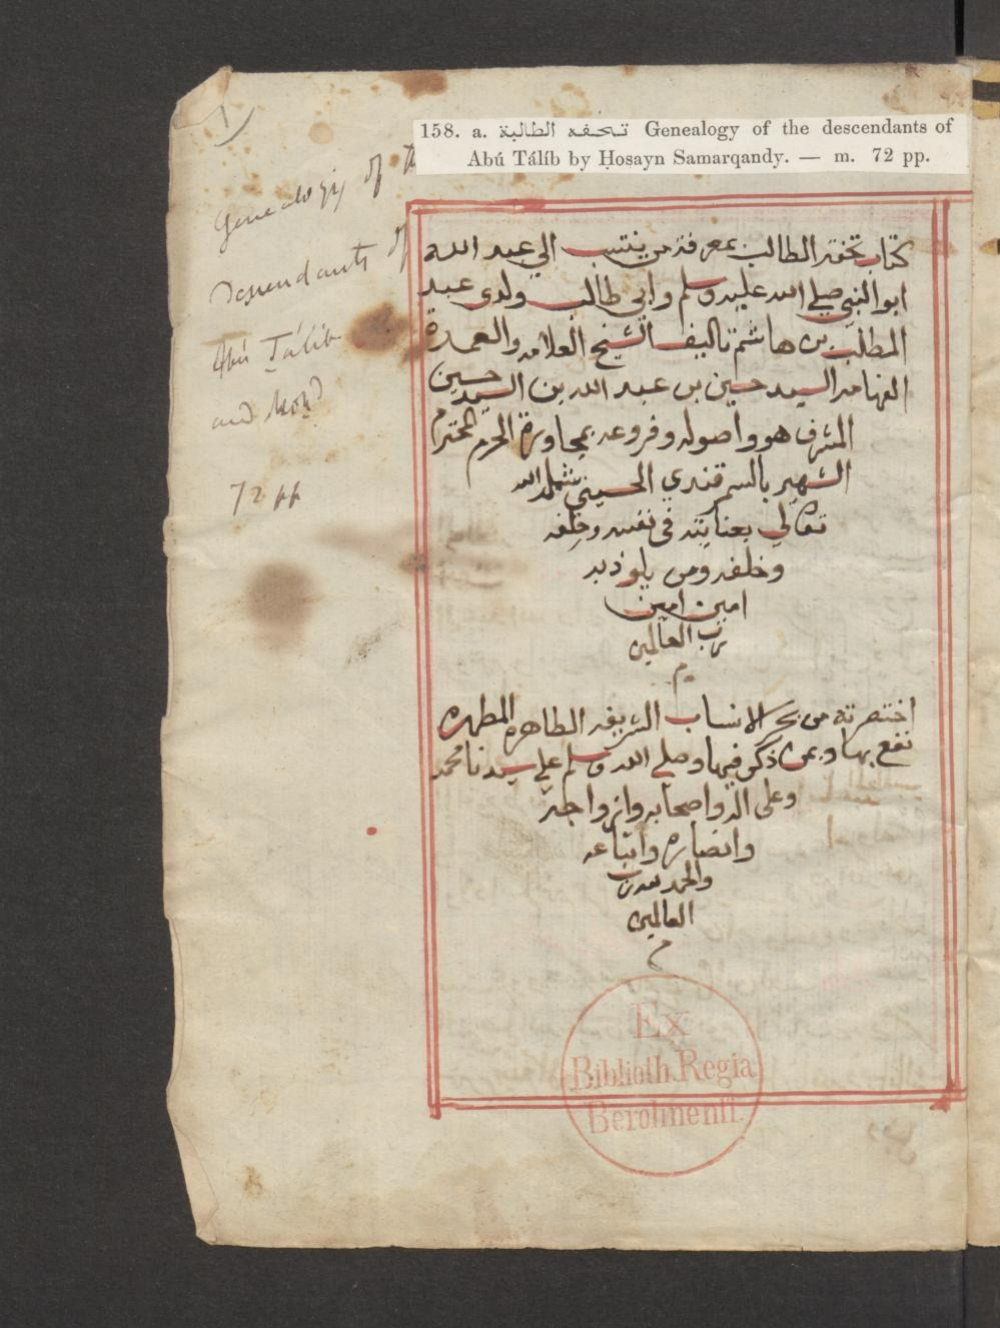 158. a. تحفه الطالبة Genealogy of the descendants of
Abú Tálíb by Ḥosayn Samarqandy. — m. 72 pp.
Genealogy of
Descendants of
Abú Tálib
and
72 pp
كتاب تحفة الطالب بمعرفة من ينتسب الي عبد الله
ابو النبي صلي الله عليه وسلم وابي طالب ولدي عبد
المطلب بن هاشم تاليف الشيخ العلامه والعمدة
الفهامه السيد حسين بن عبد الله بن السيد حسين
المشرف هو واصوله وفروعه بمجاورة الحرم المحترم
الشهير بالسمرقندي الحسيني شمله الله
تعالي بعنايته في نفسه وخلفه
وخلفه ومن يلوذ به
امين امين
رب العالمين
م
اختصرته من بحر الانساب الشريفه الطاهره المطهره
نفع بها وبمن ذكر فيها وصلي الله وسلم علي سيدنا محمد
وعلى اله واصحابه وازواجه
وانصاره واتباعه
والحمد لله رب
العالمين
م
Ex
Biblioth. Regia
Berolinenſi.